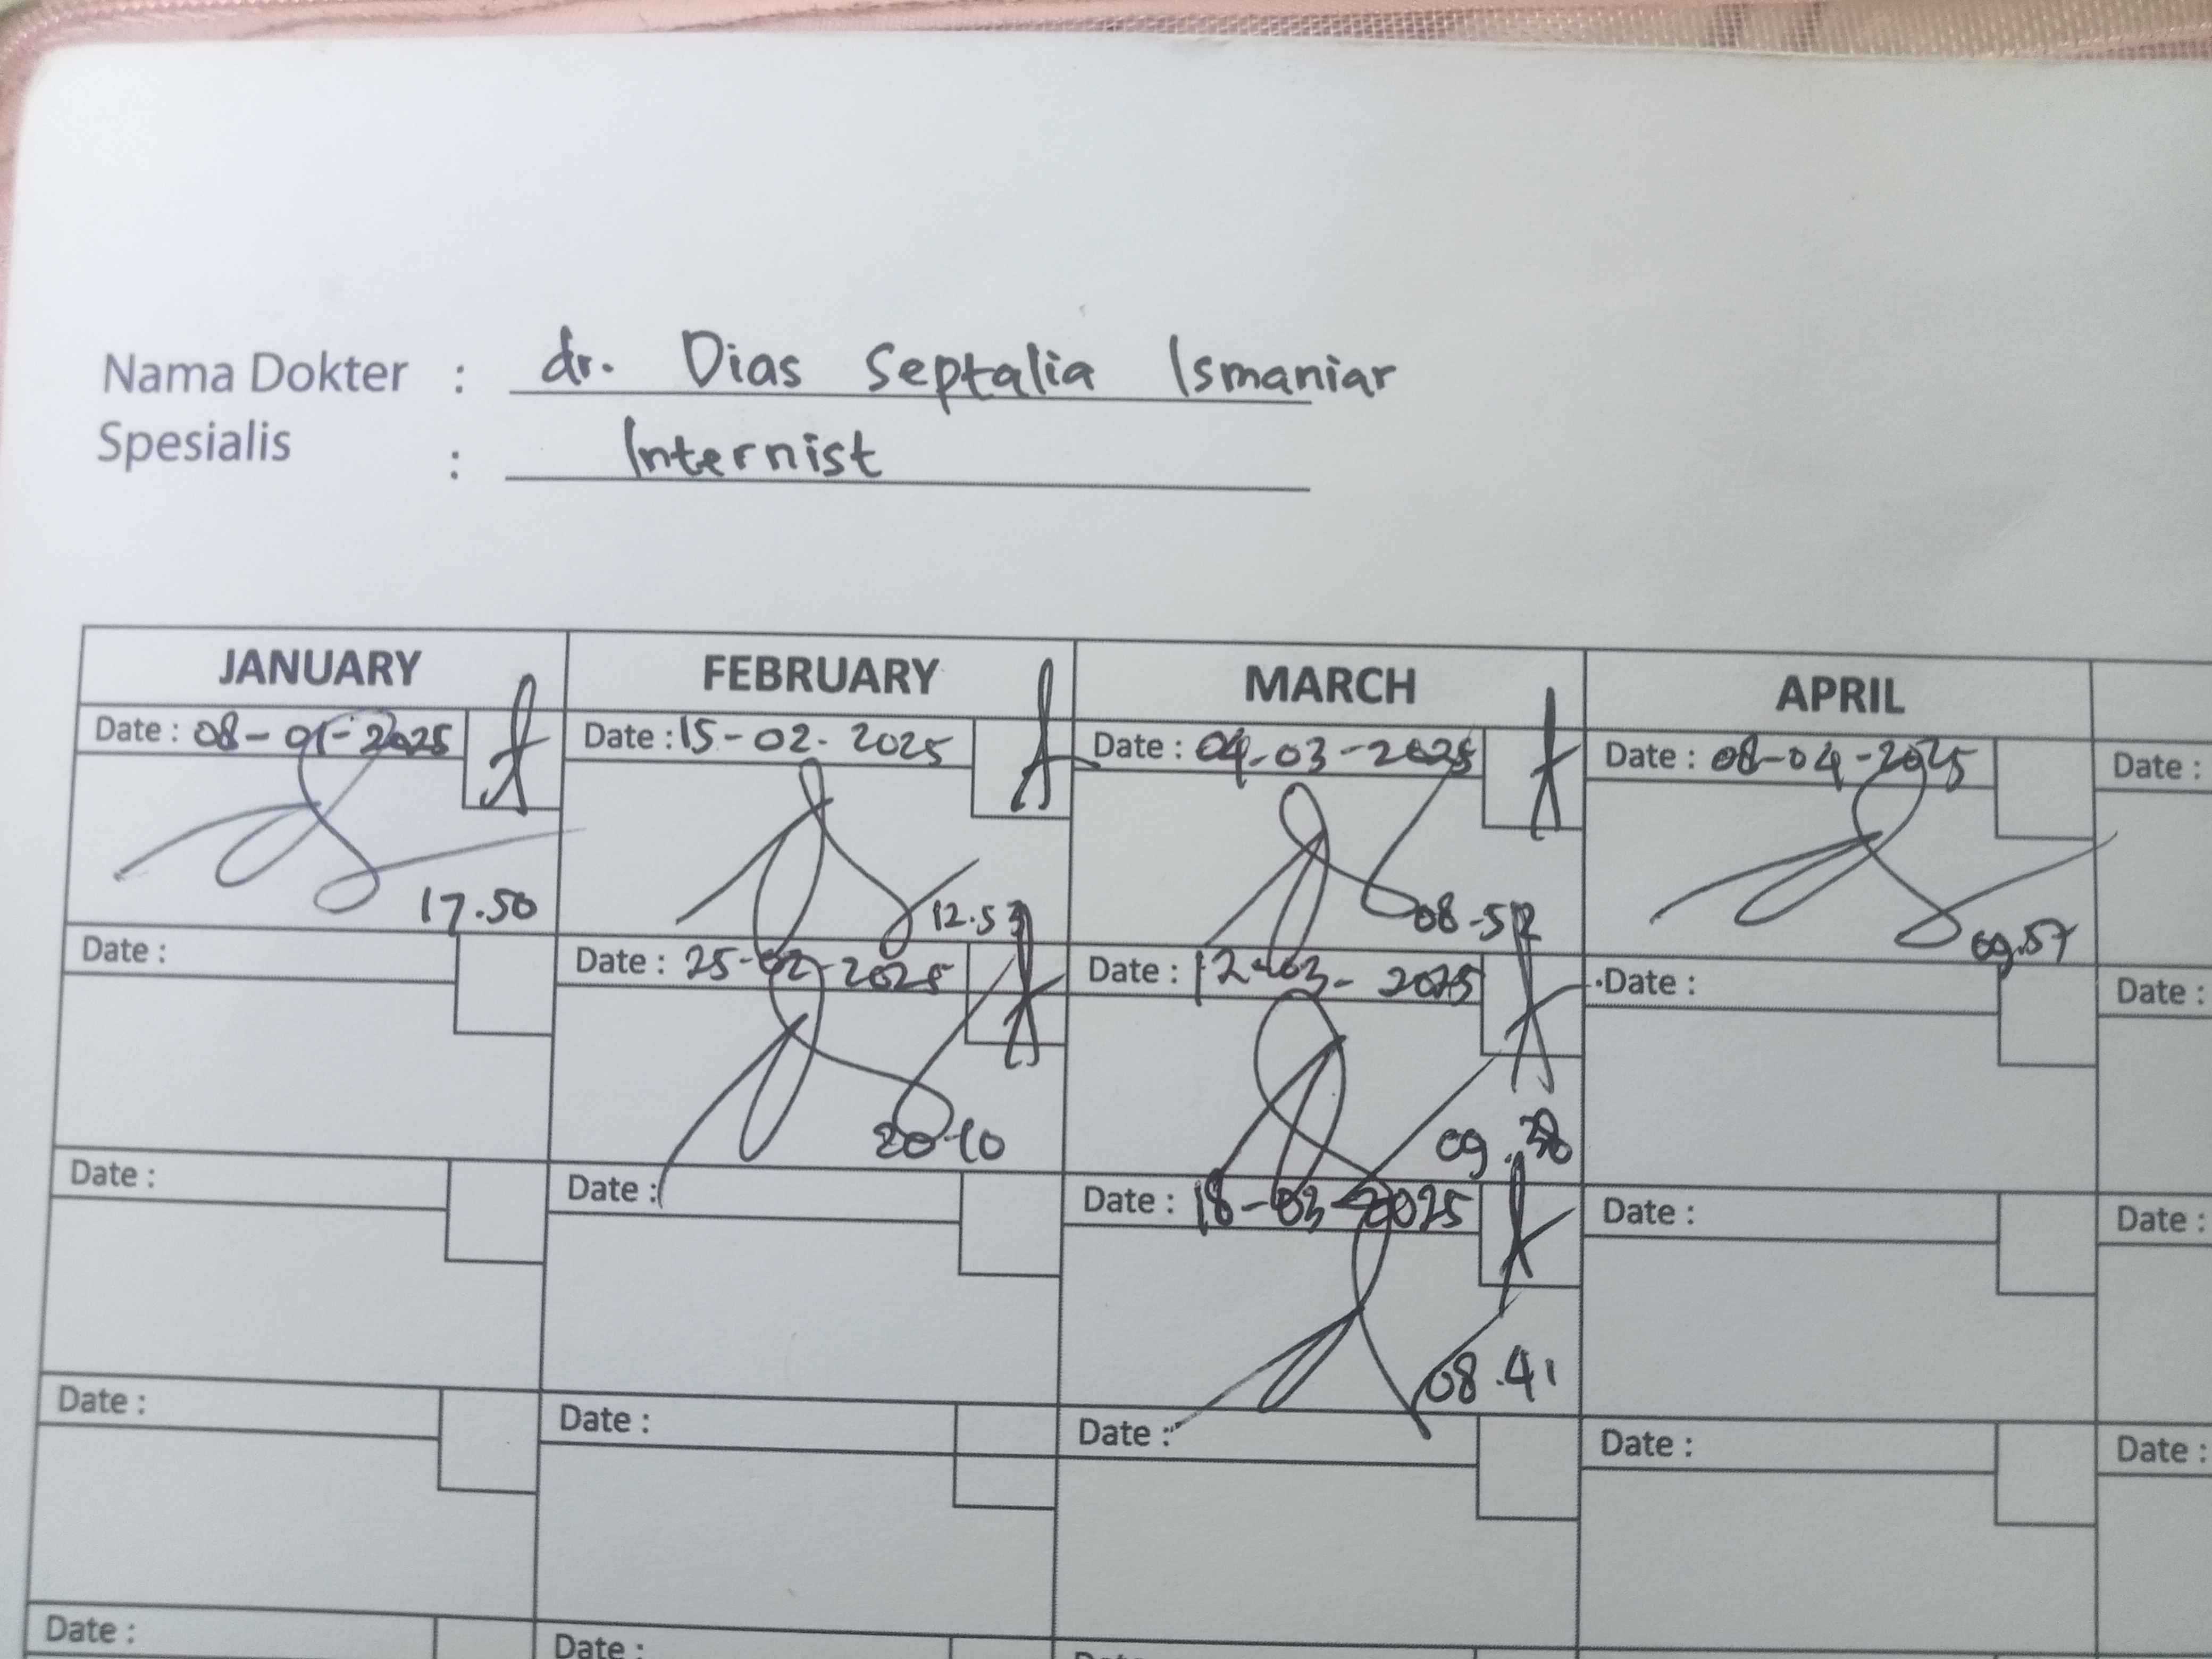 Nama Dokter : dr. Dias Septalia Ismaniar
Spesialis : Internist
JANUARY FEBRUARY MARCH APRIL
Date : 08-01-2025 Date : 15-02-2025 Date : 04-03-2025 Date : 08-04-2025 Date :
17.50 12.53 08.52 09.57
Date : Date : 25-02-2025 Date : 12-03-2025 Date : Date :
20.10 09.38
Date : Date : Date : 18-03-2025 Date : Date :
08.41
Date : Date : Date : Date : Date :
Date : Date :